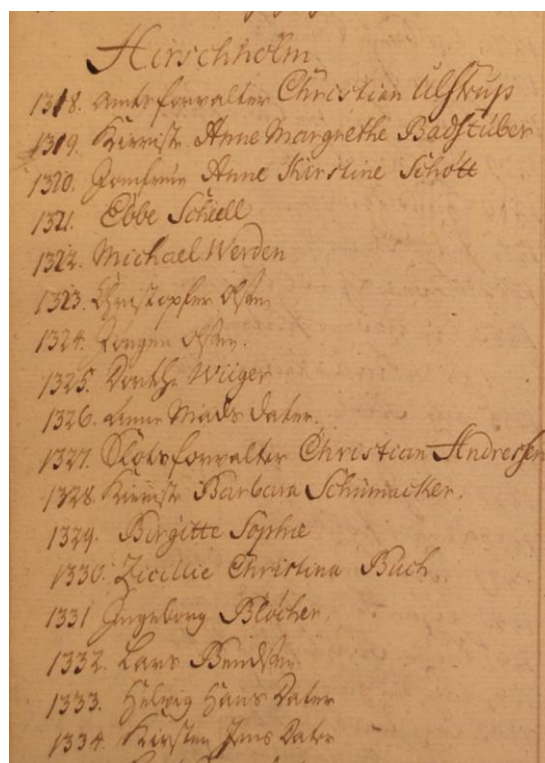 Hirschholm
1318. Amtsforvalter Christian Ulstrup
1319. Anne Margrethe Badstüber
1320. Jomfrue Anne Kirstine Schøtt
1321. Ebbe Scheell
1322. Michael Werden
1323. Christopfer Olsen
1324. Jörgen Olsen.
1325. Dorthe Wiiger
1326. Anne Mads dater.
1327. Slotsforvalter Christian Andressen
1328. Barbara Schumacker.
1329. Birgitte Sophie
1330. Zicillie Christina Buch
1331 Ingeborg Bløcher,
1332. Lars Bendsen
1333. Helvig Hans Dater
1334. Kirsten Jens Dater